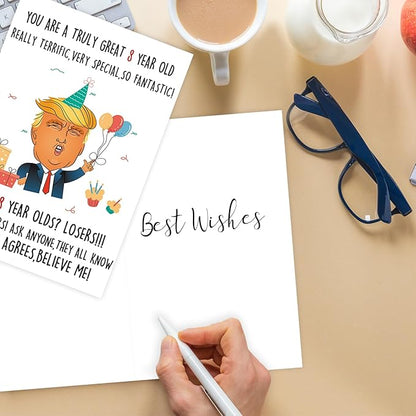 YOU ARE A TRULY GREAT 8 YEAR OLD
REALLY TERRIFIC, VERY SPECIAL, SO FANTASTIC!
8 YEAR OLDS? LOSERS!!!
ASK ANYONE, THEY ALL KNOW
AGREES, BELIEVE ME!
Best Wishes